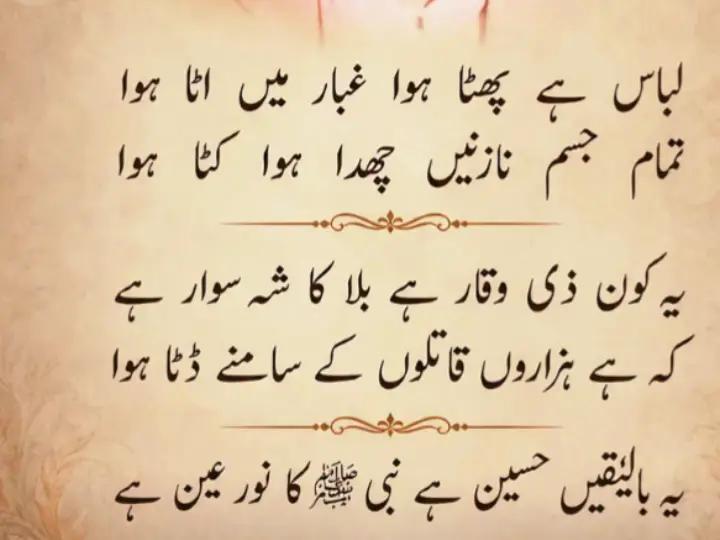 لباس ہے پھٹا ہوا غبار میں اٹا ہوا
تمام جسم نازنیں چھدا ہوا کٹا ہوا
یہ کون ذی وقار ہے بلا کا شہ سوار ہے
کہ ہے ہزاروں قاتلوں کے سامنے ڈٹا ہوا
یہ بالیٰقیں حسین ہے نبی ﷺ کا نور عین ہے